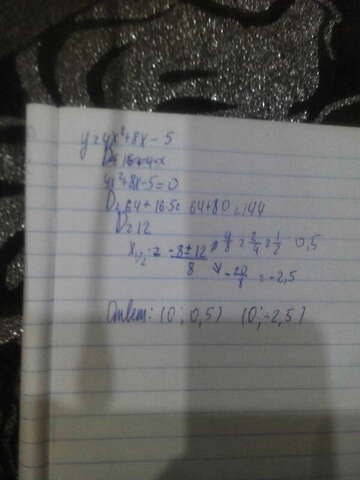 y=4x²+8x-5
4x²+8x-5=0
D=64+16·5=64+80=144
D=12
x₁/₂ = -8±12/8 4/8=2/4=1/2 0,5
-20/8=-2,5
Ответ: (0; 0,5) (0; -2,5)